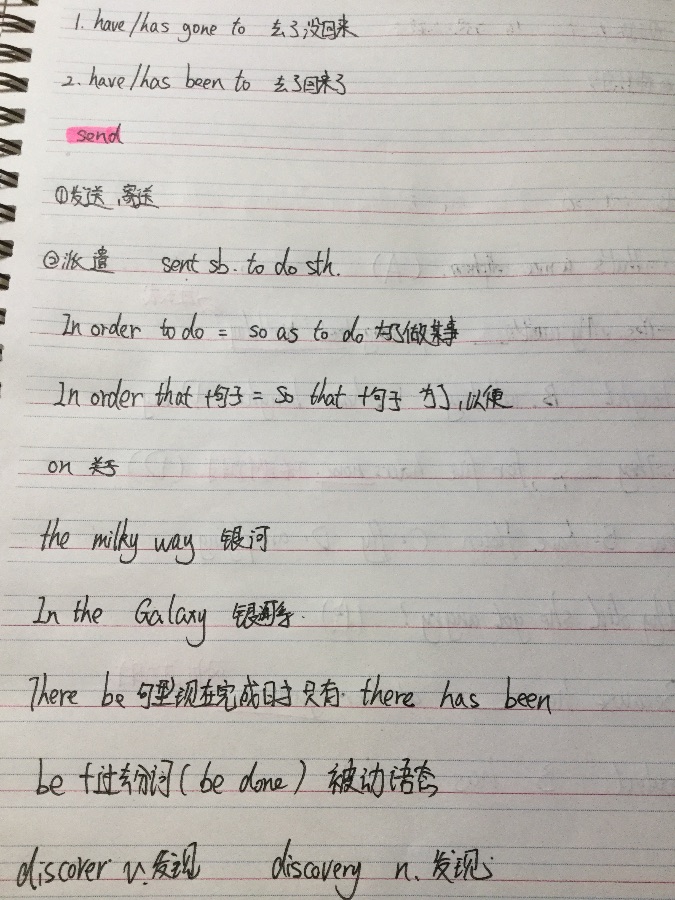 1. have/has gone to 去了没回来
2. have/has been to 去了回来了
send
①发送、寄送
②派遣 sent sb. to do sth.
In order to do = so as to do 为了做某事
In order that +句子 = So that +句子 为了,以便
on 关于
the milky way 银河
In the Galaxy 银河系.
There be 句型现在完成时 只有 there has been
be +过去分词(be done) 被动语态
discover v.发现 discovery n. 发现